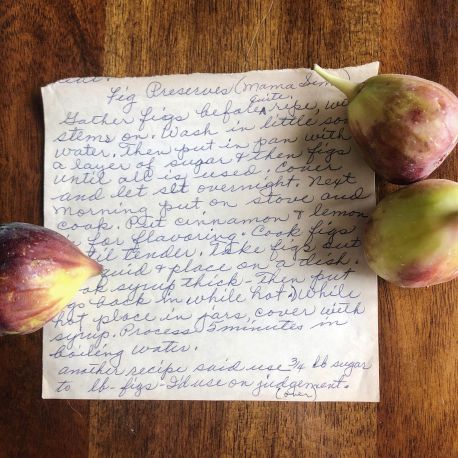 Fig Preserves (Mama Sim
Gather figs before quite ripe, wi
stems on. Wash in little so
water. Then put in pan with
a layer of sugar & then figs
until all is used. Cover
and let set overnight. Next
morning put on stove and
cook. Put cinnamon & lemon
in for flavoring. Cook figs
til tender. Take figs out
quid & place on a dish.
ok syrup thick - then put
gs back in while hot. While
hot place in jars, cover with
syrup. Process 5 minutes in
boiling water.
another recipe said use 3/4 lb sugar
to lb - figs - I'd use on judgement.
(over)